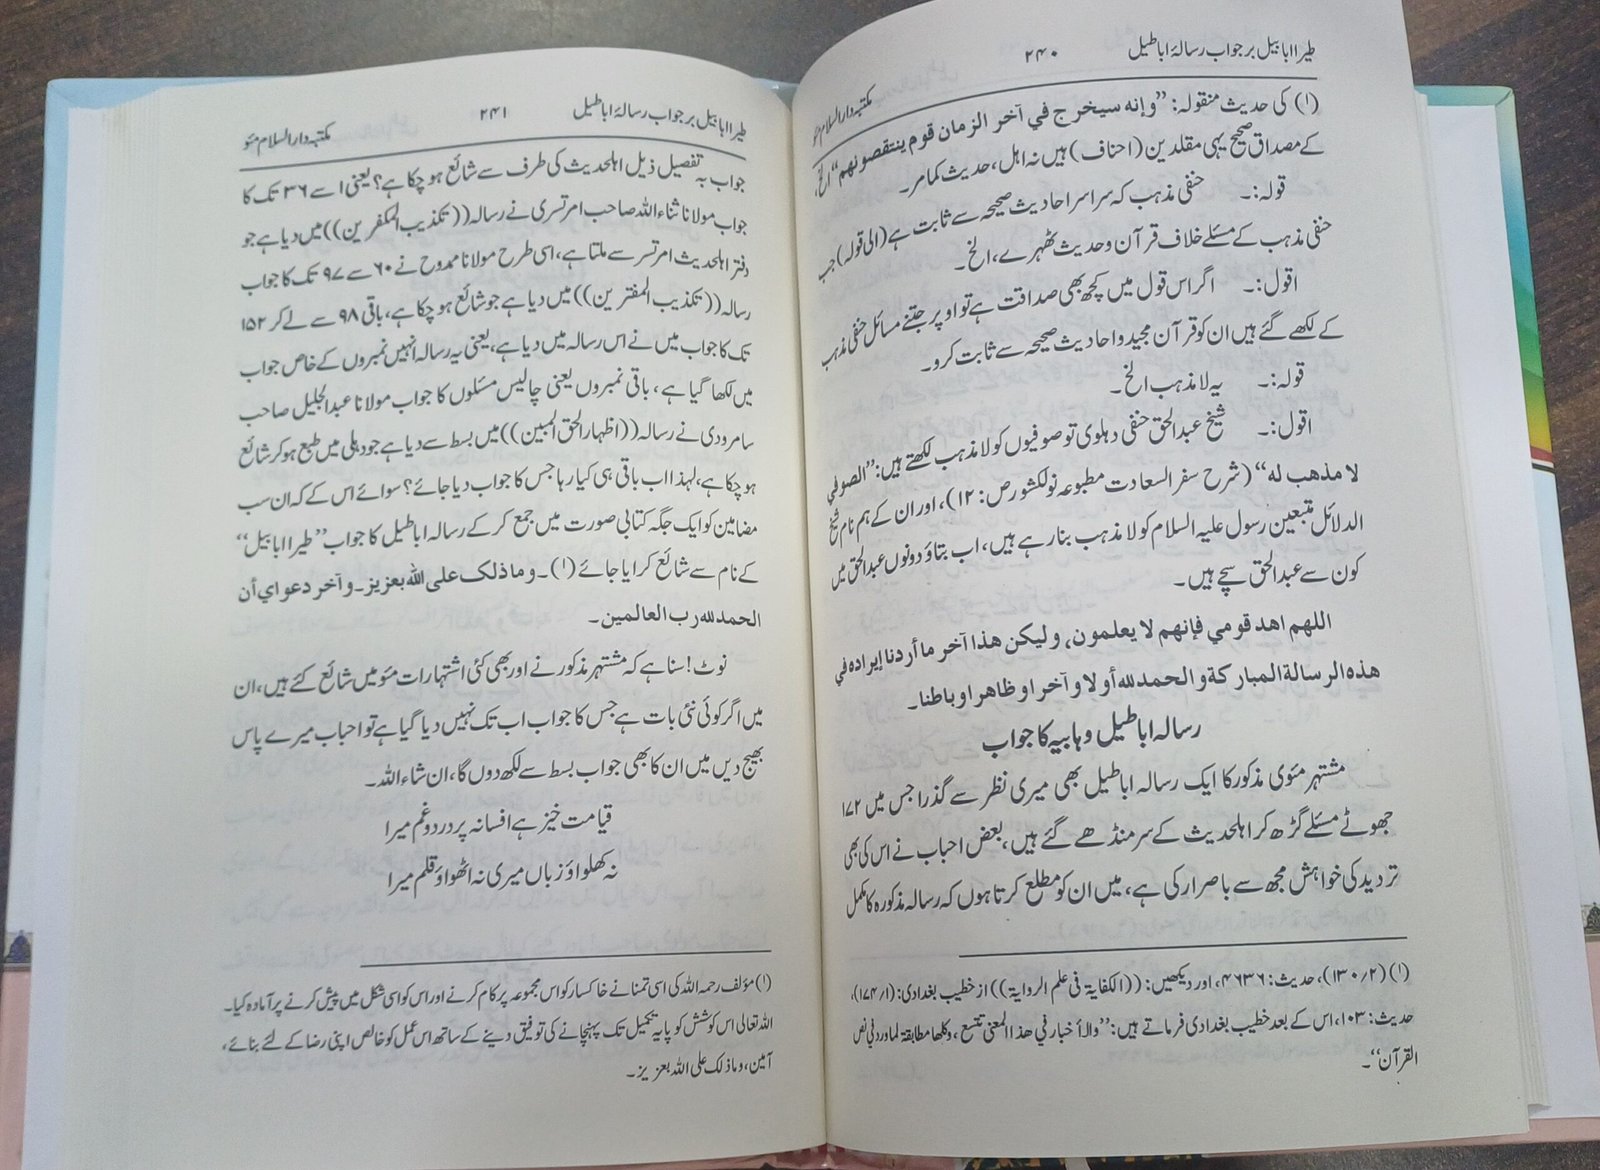 طیرا ابابیل بر جواب رسالۂ اباطیل ۲۴۰ مکتبہ دارالسلام مئو
(۱) کی حدیث منقولہ: ”وإنه سيخرج في آخر الزمان قوم ينتقصونهم“ الخ،
کے مصداق صحیح یہی مقلدین (احناف) ہیں نہ اہل، حدیث کمامر۔
قولہ:۔ حنفی مذہب کہ سراسر احادیث صحیحہ سے ثابت ہے (الی قولہ) جب
حنفی مذہب کے مسئلے خلاف قرآن وحدیث ٹھہرے، الخ۔
اقول:۔ اگر اس قول میں کچھ بھی صداقت ہے تو اوپر جتنے مسائل حنفی مذہب
کے لکھے گئے ہیں ان کو قرآن مجید و احادیث صحیحہ سے ثابت کرو۔
قولہ:۔ یہ لا مذہب الخ۔
اقول:۔ شیخ عبدالحق حنفی دہلوی تو صوفیوں کو لا مذہب لکھتے ہیں: ”الصوفي
لا مذهب له“ (شرح سفر السعادت مطبوعہ نولکشور ص: ۱۲)، اور ان کے ہم نام شیخ
الدلائل متبعین رسول علیہ السلام کو لا مذہب بنا رہے ہیں، اب بتاؤ دونوں عبدالحق میں
کون سے عبدالحق سچے ہیں۔
اللهم اهد قومي فإنهم لا يعلمون، وليكن هذا آخر ما أردنا إيراده في
هذه الرسالة المباركة و الحمد لله أولا و آخر ا و ظاهر ا و باطنا۔
رسالہ اباطیل وہابیہ کا جواب
مشتہر مئوی مذکور کا ایک رسالہ اباطیل بھی میری نظر سے گذرا جس میں ۱۷۲
جھوٹے مسئلے گڑھ کر اہلحدیث کے سر منڈھے گئے ہیں، بعض احباب نے اس کی بھی
تردید کی خواہش مجھ سے باصرار کی ہے، میں ان کو مطلع کرتا ہوں کہ رسالہ مذکورہ کا مکمل
(۱) (۲/۱۳۰)، حدیث: ۴۶۳۶، اور دیکھیں: ((الکفایة فی علم الروایة)) از خطیب بغدادی: (۱/۱۷۴)،
حدیث: ۱۰۳، اس کے بعد خطیب بغدادی فرماتے ہیں: ”والأخبار في هذا المعنى تتسع، وكلها مطابقة لما ورد في نص
القرآن“۔
طیرا ابابیل بر جواب رسالۂ اباطیل ۲۴۱ مکتبہ دارالسلام مئو
جواب بہ تفصیل ذیل اہلحدیث کی طرف سے شائع ہو چکا ہے؟ یعنی ۱ سے ۳۶ تک کا
جواب مولانا ثناء اللہ صاحب امرتسری نے رسالہ ((تکذیب المکفرین)) میں دیا ہے جو
دفتر اہلحدیث امرتسر سے ملتا ہے، اسی طرح مولانا ممدوح نے ۶۰ سے ۹۷ تک کا جواب
رسالہ ((تکذیب المفترین)) میں دیا ہے جو شائع ہو چکا ہے، باقی ۹۸ سے لے کر ۱۵۲
تک کا جواب میں نے اس رسالہ میں دیا ہے، یعنی یہ رسالہ انہیں نمبروں کے خاص جواب
میں لکھا گیا ہے، باقی نمبروں یعنی چالیس مسئلوں کا جواب مولانا عبدالجلیل صاحب
سامرودی نے رسالہ ((اظہار الحق المبین)) میں بسط سے دیا ہے جو دہلی میں طبع ہو کر شائع
ہو چکا ہے، لہذا اب باقی ہی کیا رہا جس کا جواب دیا جائے؟ سوائے اس کے کہ ان سب
مضامین کو ایک جگہ کتابی صورت میں جمع کر کے رسالہ اباطیل کا جواب ”طیرا ابابیل“
کے نام سے شائع کرایا جائے (۱)۔ و ما ذلک علی اللہ بعزیز۔ و آخر دعوا اي أن
الحمد لله رب العالمين۔
نوٹ! سنا ہے کہ مشتہر مذکور نے اور بھی کئی اشتہارات مئو میں شائع کئے ہیں، ان
میں اگر کوئی نئی بات ہے جس کا جواب اب تک نہیں دیا گیا ہے تو احباب میرے پاس
بھیج دیں میں ان کا بھی جواب بسط سے لکھ دوں گا، ان شاء اللہ۔
قیامت خیز ہے افسانہ پر درد و غم میرا
نہ کھلواؤ زباں میری نہ اٹھواؤ قلم میرا
(۱) مؤلف رحمہ اللہ کی اسی تمنا نے خاکسار کو اس مجموعہ پر کام کرنے اور اس کو اسی شکل میں پیش کرنے پر آمادہ کیا۔
اللہ تعالی اس کوشش کو پایہ تکمیل تک پہنچانے کی توفیق دینے کے ساتھ اس عمل کو خالص اپنی رضا کے لئے بنائے،
آمین، وما ذلک علی اللہ بعزیز۔